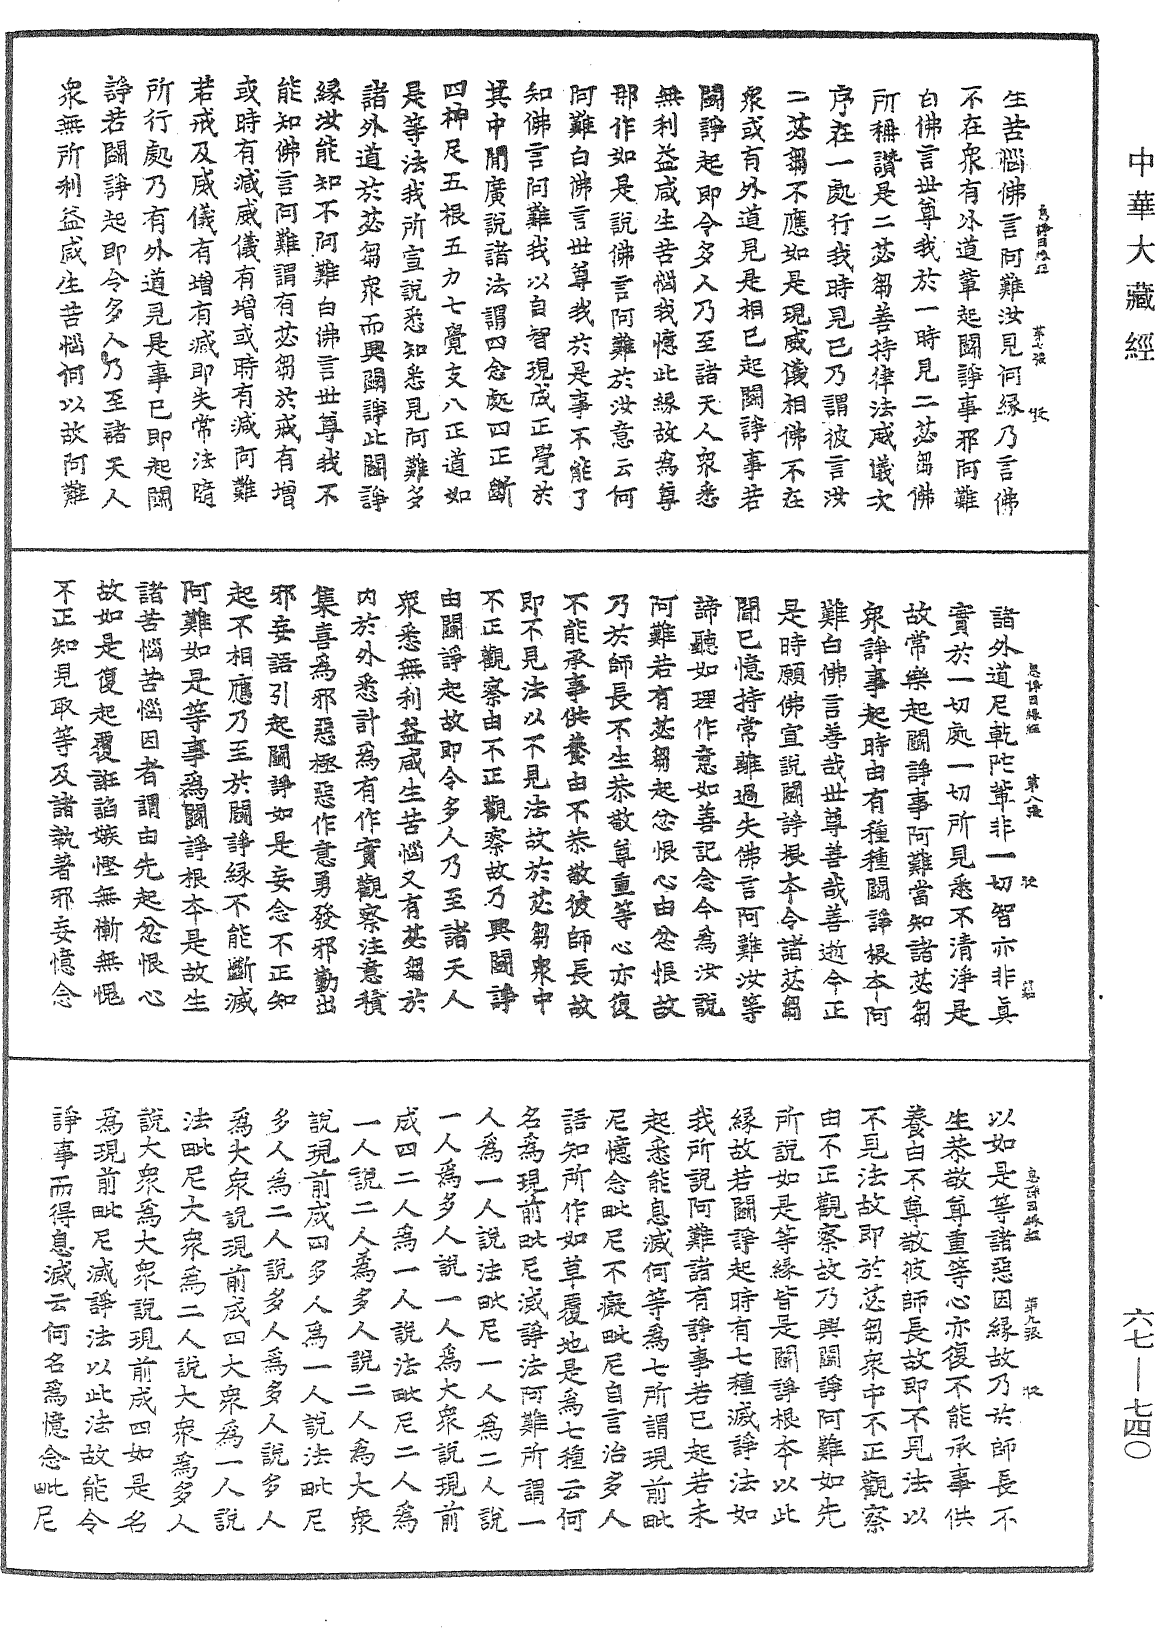 中華大藏經
息諍因緣經 第七張
生苦惱佛言阿難汝見何緣乃言佛
不在衆有外道輩起鬪諍事邪阿難
白佛言世尊我於一時見二苾芻佛
所稱讚是二苾芻善持律法威儀次
序在一處行我時見已乃謂彼言汝
二苾芻不應如是現威儀相佛不在
衆或有外道見是相已起鬪諍事若
鬪諍起即令多人乃至諸天人衆悉
無利益咸生苦惱我憶此緣故爲尊
那作如是說佛言阿難於汝意云何
阿難白佛言世尊我於是事不能了
知佛言阿難我以自智現成正覺於
其中間廣說諸法謂四念處四正斷
四神足五根五力七覺支八正道如
是等法我所宣說悉知悉見阿難多
諸外道於苾芻衆而興鬪諍此鬪諍
緣汝能知不阿難白佛言世尊我不
能知佛言阿難謂有苾芻於戒有增
或時有減威儀有增或時有減阿難
若戒及威儀有增有減即失常法隨
所行處乃有外道見是事已即起鬪
諍若鬪諍起即令多人乃至諸天人
衆無所利益咸生苦惱何以故阿難
息諍因緣經 第八張
諸外道尼乾陀輩非一切智亦非眞
實於一切處一切所見悉不清淨是
故常樂起鬪諍事阿難當知諸苾芻
衆諍事起時由有種種鬪諍根本阿
難白佛言善哉世尊善哉善逝今正
是時願佛宣說鬪諍根本令諸苾芻
聞已憶持常離過失佛言阿難汝等
諦聽如理作意如善記念今為汝說
阿難若有苾芻起忿恨心由忿恨故
乃於師長不生恭敬尊重等心亦復
不能承事供養由不恭敬彼師長故
即不見法以不見法故於苾芻衆中
不正觀察由不正觀察故乃興鬪諍
由鬪諍起故即令多人乃至諸天人
衆悉無利益咸生苦惱又有苾芻於
內於外悉計爲有作實觀察注意積
集喜爲邪惡極惡作意勇發邪勤出
邪妄語引起鬪諍如是妄念不正知
起不相應乃至於鬪諍緣不能斷滅
阿難如是等事爲鬪諍根本是故生
諸苦惱苦惱因者謂由先起忿恨心
故如是復起覆誑諂嫉慳無慚無愧
不正知見取等及諸執著邪妄憶念
息諍因緣經 第九張
以如是等諸惡因緣故乃於師長不
生恭敬尊重等心亦復不能承事供
養由不尊敬彼師長故即不見法以
不見法故即於苾芻衆中不正觀察
由不正觀察故乃興鬪諍阿難如先
所說如是等緣皆是鬪諍根本以此
緣故若鬪諍起時有七種滅諍法如
我所說阿難諸有諍事若已起若未
起悉能息滅何等為七所謂現前毗
尼憶念毗尼不癡毗尼自言治多人
語知所作如草覆地是爲七種云何
名爲現前毗尼滅諍法阿難所謂一
人為一人說法毗尼一人為二人說
一人爲多人說一人爲大衆說現前
成四二人爲一人說法毗尼二人爲
一人說二人爲多人說二人爲大衆
說現前成四多人爲一人說法毗尼
多人為二人說多人爲多人說多人
爲大衆說現前成四大衆為一人說
法毗尼大衆為二人說大衆為多人
說大衆為大衆說現前成四如是名
爲現前毗尼滅諍法以此法故能令
諍事而得息滅云何名爲憶念毗尼
六七—七四〇